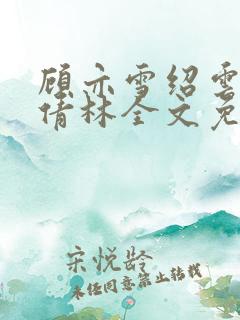 顾亦雪绍雲
倩林全文免
宋悦龄
未经同意禁止转载